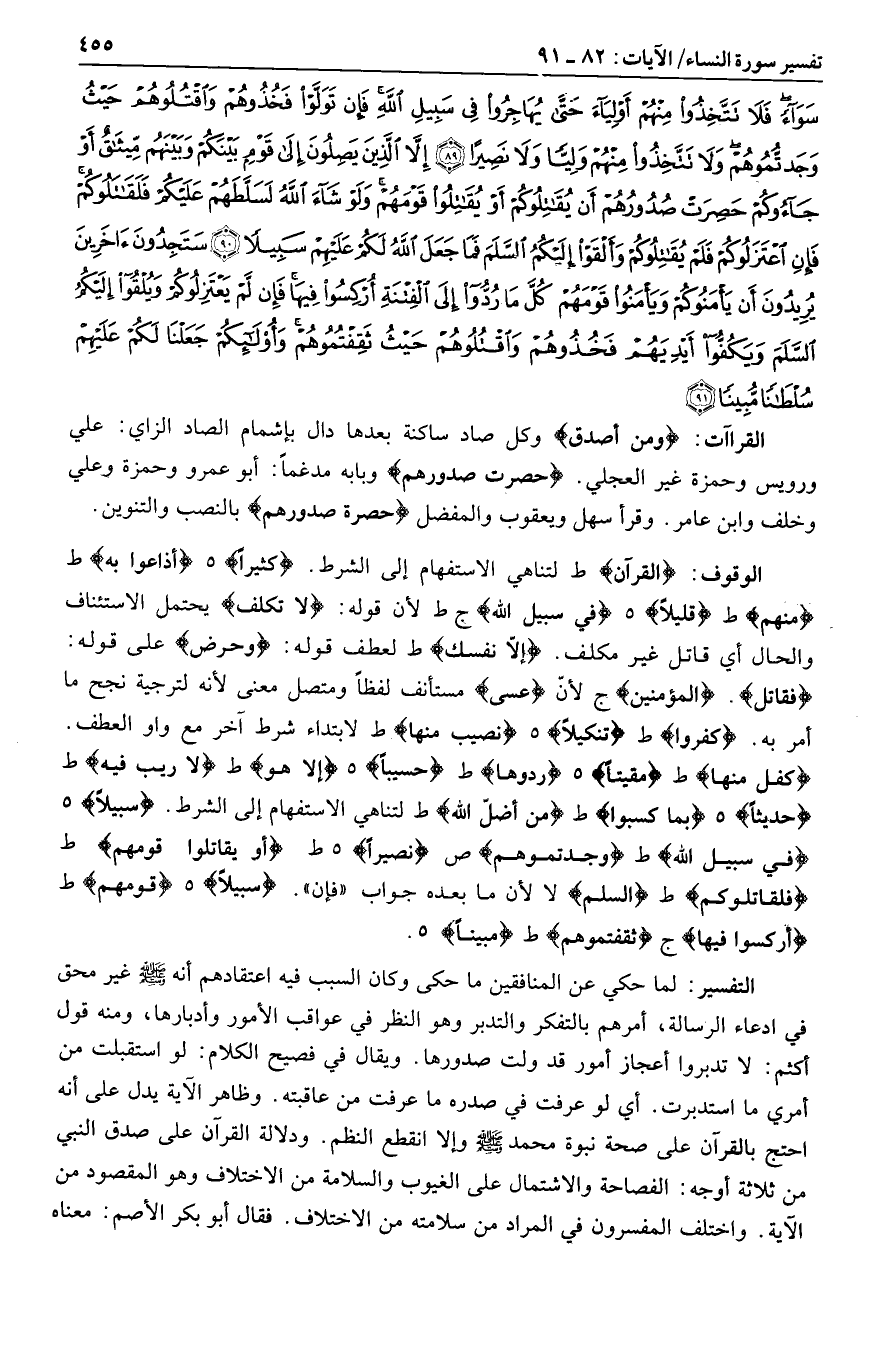 تفسير سورة النساء/ الآيات: ٨٢ - ٩١
٤٥٥
سَوَآءً فَلَا تَتَّخِذُوا۟ مِنْهُمْ أَوْلِيَآءَ حَتَّىٰ يُهَاجِرُوا۟ فِى سَبِيلِ ٱللَّهِ فَإِن تَوَلَّوْا۟ فَخُذُوهُمْ وَٱقْتُلُوهُمْ حَيْثُ
وَجَدتُّمُوهُمْ وَلَا تَتَّخِذُوا۟ مِنْهُمْ وَلِيًّا وَلَا نَصِيرًا ﴿٨٩﴾ إِلَّا ٱلَّذِينَ يَصِلُونَ إِلَىٰ قَوْمٍۭ بَيْنَكُمْ وَبَيْنَهُم مِّيثَـٰقٌ أَوْ
جَآءُوكُمْ حَصِرَتْ صُدُورُهُمْ أَن يُقَـٰتِلُوكُمْ أَوْ يُقَـٰتِلُوا۟ قَوْمَهُمْ وَلَوْ شَآءَ ٱللَّهُ لَسَلَّطَهُمْ عَلَيْكُمْ فَلَقَـٰتَلُوكُمْ
فَإِنِ ٱعْتَزَلُوكُمْ فَلَمْ يُقَـٰتِلُوكُمْ وَأَلْقَوْا۟ إِلَيْكُمُ ٱلسَّلَمَ فَمَا جَعَلَ ٱللَّهُ لَكُمْ عَلَيْهِمْ سَبِيلًا ﴿٩٠﴾ سَتَجِدُونَ ءَاخَرِينَ
يُرِيدُونَ أَن يَأْمَنُوكُمْ وَيَأْمَنُوا۟ قَوْمَهُمْ كُلَّ مَا رُدُّوٓا۟ إِلَى ٱلْفِتْنَةِ أُرْكِسُوا۟ فِيهَا فَإِن لَّمْ يَعْتَزِلُوكُمْ وَيُلْقُوٓا۟ إِلَيْكُمُ
ٱلسَّلَمَ وَيَكُفُّوٓا۟ أَيْدِيَهُمْ فَخُذُوهُمْ وَٱقْتُلُوهُمْ حَيْثُ ثَقِفْتُمُوهُمْ وَأُو۟لَـٰٓئِكُمْ جَعَلْنَا لَكُمْ عَلَيْهِمْ
سُلْطَـٰنًا مُّبِينًا ﴿٩١﴾
القراآت: ﴿ومن أصدق﴾ وكل صاد ساكنة بعدها دال بإشمام الصاد الزاي: علي
ورويس وحمزة غير العجلي. ﴿حصرت صدورهم﴾ وبابه مدغماً: أبو عمرو وحمزة وعلي
وخلف وابن عامر. وقرأ سهل ويعقوب والمفضل ﴿حصرة صدورهم﴾ بالنصب والتنوين.
الوقوف: ﴿القرآن﴾ ط لتناهي الاستفهام إلى الشرط. ﴿كثيراً﴾ ٥ ﴿أذاعوا به﴾ ط
﴿منهم﴾ ط ﴿قليلاً﴾ ٥ ﴿في سبيل الله﴾ ج ط لأن قوله: ﴿لا تكلف﴾ يحتمل الاستئناف
والحال أي قاتل غير مكلف. ﴿إلاّ نفسك﴾ ط لعطف قوله: ﴿وحرض﴾ على قوله:
﴿فقاتل﴾. ﴿المؤمنين﴾ ج لأنّ ﴿عسى﴾ مستأنف لفظاً ومتصل معنى لأنه لترجية نجح ما
أمر به. ﴿كفروا﴾ ط ﴿تنكيلاً﴾ ٥ ﴿نصيب منها﴾ ط لابتداء شرط آخر مع واو العطف.
﴿كفل منها﴾ ط ﴿مقيتاً﴾ ٥ ﴿ردوها﴾ ط ﴿حسيباً﴾ ٥ ﴿إلا هو﴾ ط ﴿لا ريب فيه﴾ ط
﴿حديثاً﴾ ٥ ﴿بما كسبوا﴾ ط ﴿من أضلّ الله﴾ ط لتناهي الاستفهام إلى الشرط. ﴿سبيلاً﴾ ٥
﴿في سبيل الله﴾ ط ﴿وجدتموهم﴾ ص ﴿نصيراً﴾ ٥ ط ﴿أو يقاتلوا قومهم﴾ ط
﴿فلقاتلوكم﴾ ط ﴿السلم﴾ لا لأن ما بعده جواب «فإن». ﴿سبيلاً﴾ ٥ ﴿قومهم﴾ ط
﴿أركسوا فيها﴾ ج ﴿ثقفتموهم﴾ ط ﴿مبيناً﴾ ٥.
التفسير: لما حكي عن المنافقين ما حكى وكان السبب فيه اعتقادهم أنه ﷺ غير محق
في ادعاء الرسالة، أمرهم بالتفكر والتدبر وهو النظر في عواقب الأمور وأدبارها، ومنه قول
أكثم: لا تدبروا أعجاز أمور قد ولت صدورها. ويقال في فصيح الكلام: لو استقبلت من
أمري ما استدبرت. أي لو عرفت في صدره ما عرفت من عاقبته. وظاهر الآية يدل على أنه
احتج بالقرآن على صحة نبوة محمد ﷺ وإلا انقطع النظم. ودلالة القرآن على صدق النبي
من ثلاثة أوجه: الفصاحة والاشتمال على الغيوب والسلامة من الاختلاف وهو المقصود من
الآية. واختلف المفسرون في المراد من سلامته من الاختلاف. فقال أبو بكر الأصم: معناه